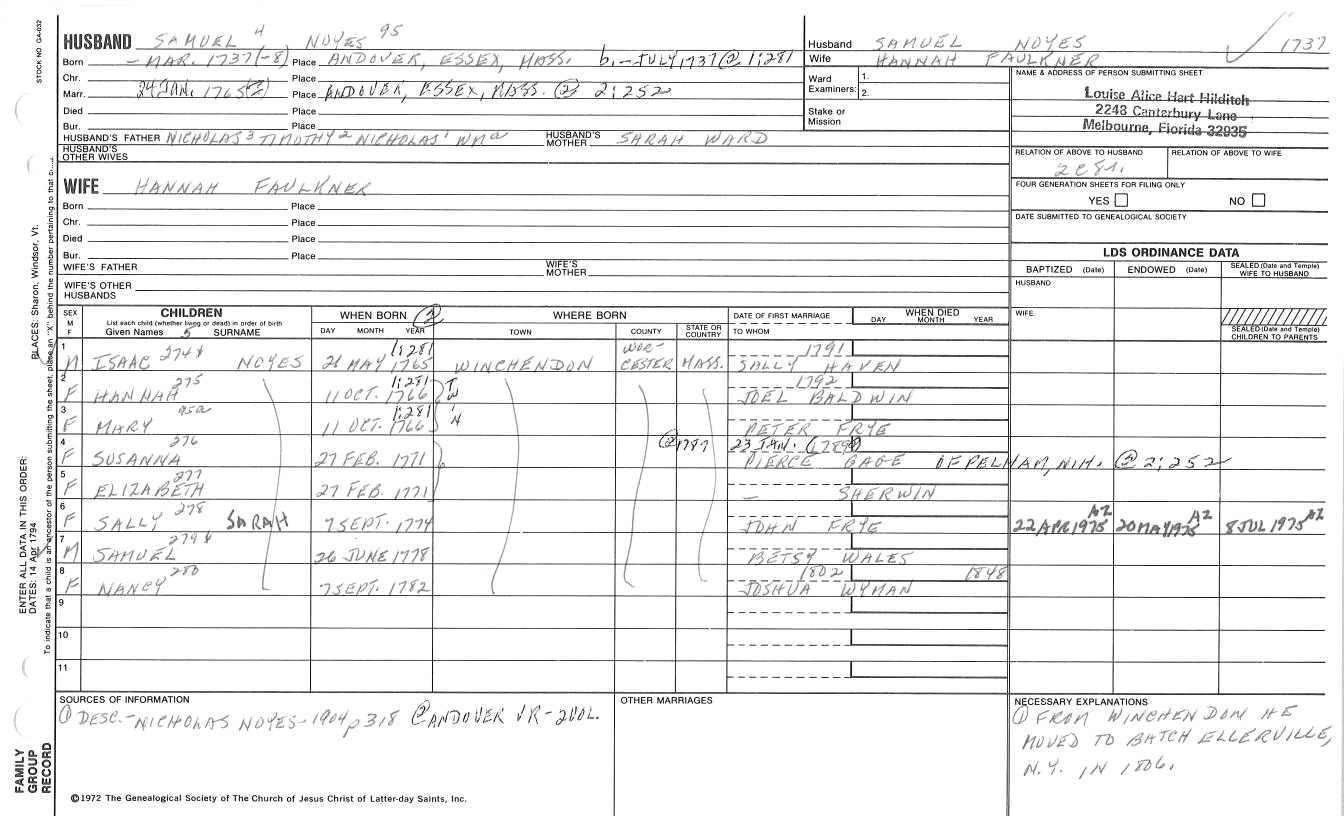 STOCK NO. GA-032
HUSBAND SAMUEL 4 NOYES 95
Born - MAR. 1737(-8) Place ANDOVER, ESSEX, MASS. b.-JULY 1737 @ 1:281
Chr. Place
Marr. 24 JAN. 1765 Place ANDOVER, ESSEX, MASS. ② 2:252
Died Place
Bur. Place
HUSBAND'S FATHER NICHOLAS 3 TIMOTHY 2 NICHOLAS 1 WM a HUSBAND'S MOTHER SARAH WARD
HUSBAND'S OTHER WIVES
Husband SAMUEL NOYES 1737
Wife HANNAH FAULKNER
Ward Examiners: 1.
2.
Stake or Mission
NAME & ADDRESS OF PERSON SUBMITTING SHEET
Louise Alice Hart Hilditch
2248 Canterbury Lane
Melbourne, Florida 32935
RELATION OF ABOVE TO HUSBAND RELATION OF ABOVE TO WIFE
FOUR GENERATION SHEETS FOR FILING ONLY
YES NO
DATE SUBMITTED TO GENEALOGICAL SOCIETY
WIFE HANNAH FAULKNER
Born Place
Chr. Place
Died Place
Bur. Place
WIFE'S FATHER WIFE'S MOTHER
WIFE'S OTHER HUSBANDS
LDS ORDINANCE DATA
BAPTIZED (Date) ENDOWED (Date) SEALED (Date and Temple) WIFE TO HUSBAND
HUSBAND
WIFE
SEALED (Date and Temple) CHILDREN TO PARENTS
SEX M F
CHILDREN
List each child (whether living or dead) in order of birth
Given Names 5 SURNAME
WHEN BORN ②
DAY MONTH YEAR
WHERE BORN
TOWN COUNTY STATE OR COUNTRY
DATE OF FIRST MARRIAGE
TO WHOM
WHEN DIED
DAY MONTH YEAR
1 M ISAAC 274 NOYES 21 MAY 1765 1:281 WINCHENDON WORCESTER MASS. 1791 SALLY HAVEN
2 F HANNAH 275 11 OCT. 1766 1:281 TWIN 1792 JOEL BALDWIN
3 F MARY 95a 11 OCT. 1766 1:281 PETER FRYE
4 F SUSANNA 276 27 FEB. 1771 ② 1787 23 JAN. PIERCE GAGE OF PELHAM, N.H. ② 2:252
5 F ELIZABETH 277 27 FEB. 1771 - SHERWIN
6 F SALLY 278 SARAH 7 SEPT. 1774 JOHN FRYE 22 APR 1975 AZ 20 MAY 1975 AZ 8 JUL 1975 AZ
7 M SAMUEL 279 26 JUNE 1778 BETSY WALES
8 F NANCY 280 7 SEPT. 1782 1802 JOSHUA WYMAN 1848
9
10
11
SOURCES OF INFORMATION
① DESC.-NICHOLAS NOYES-1904 p318 ② ANDOVER VR-2 VOL.
OTHER MARRIAGES
NECESSARY EXPLANATIONS
① FROM WINCHENDON HE
MOVED TO BATCH ELLERVILLE,
N.Y. IN 1806.
©1972 The Genealogical Society of The Church of Jesus Christ of Latter-day Saints, Inc.
FAMILY GROUP RECORD
ENTER ALL DATA IN THIS ORDER:
DATES: 14 Apr 1794
PLACES: Sharon, Windsor, Vt.
To indicate that a child is an ancestor of the person submitting the sheet, place an "X" behind the number pertaining to that